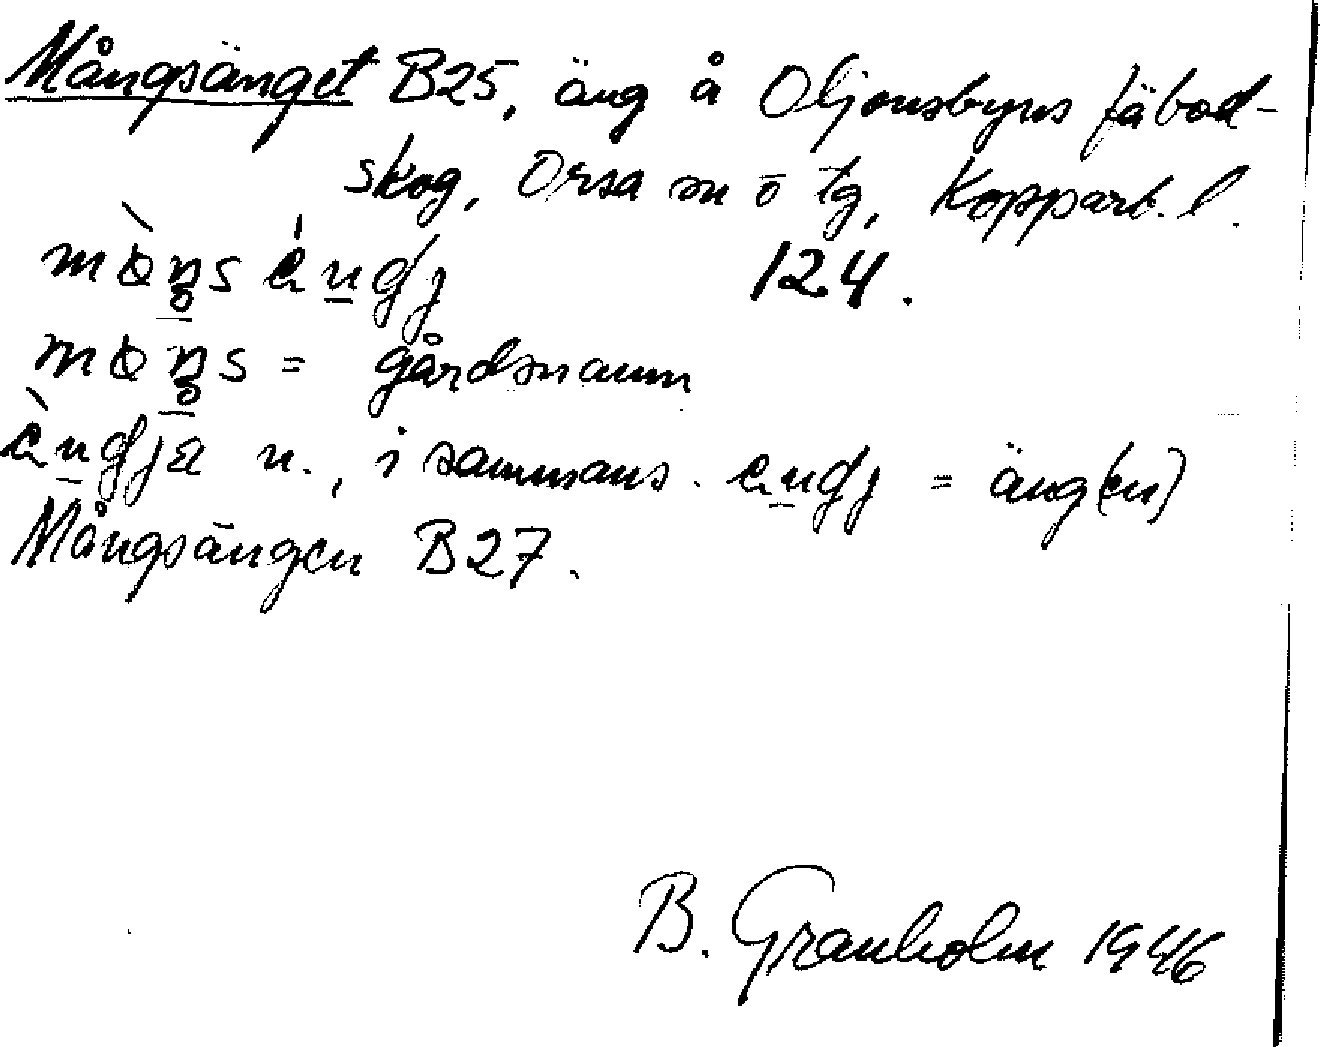 Mångsänget B25, äng å Oljonsbyns fäbod-
skog, Orsa sn o tg, Kopparb. l.
124.
= gårdsnamn
n., i sammans. = äng(en)
Mångsängen B27.
B. Granholm 1946